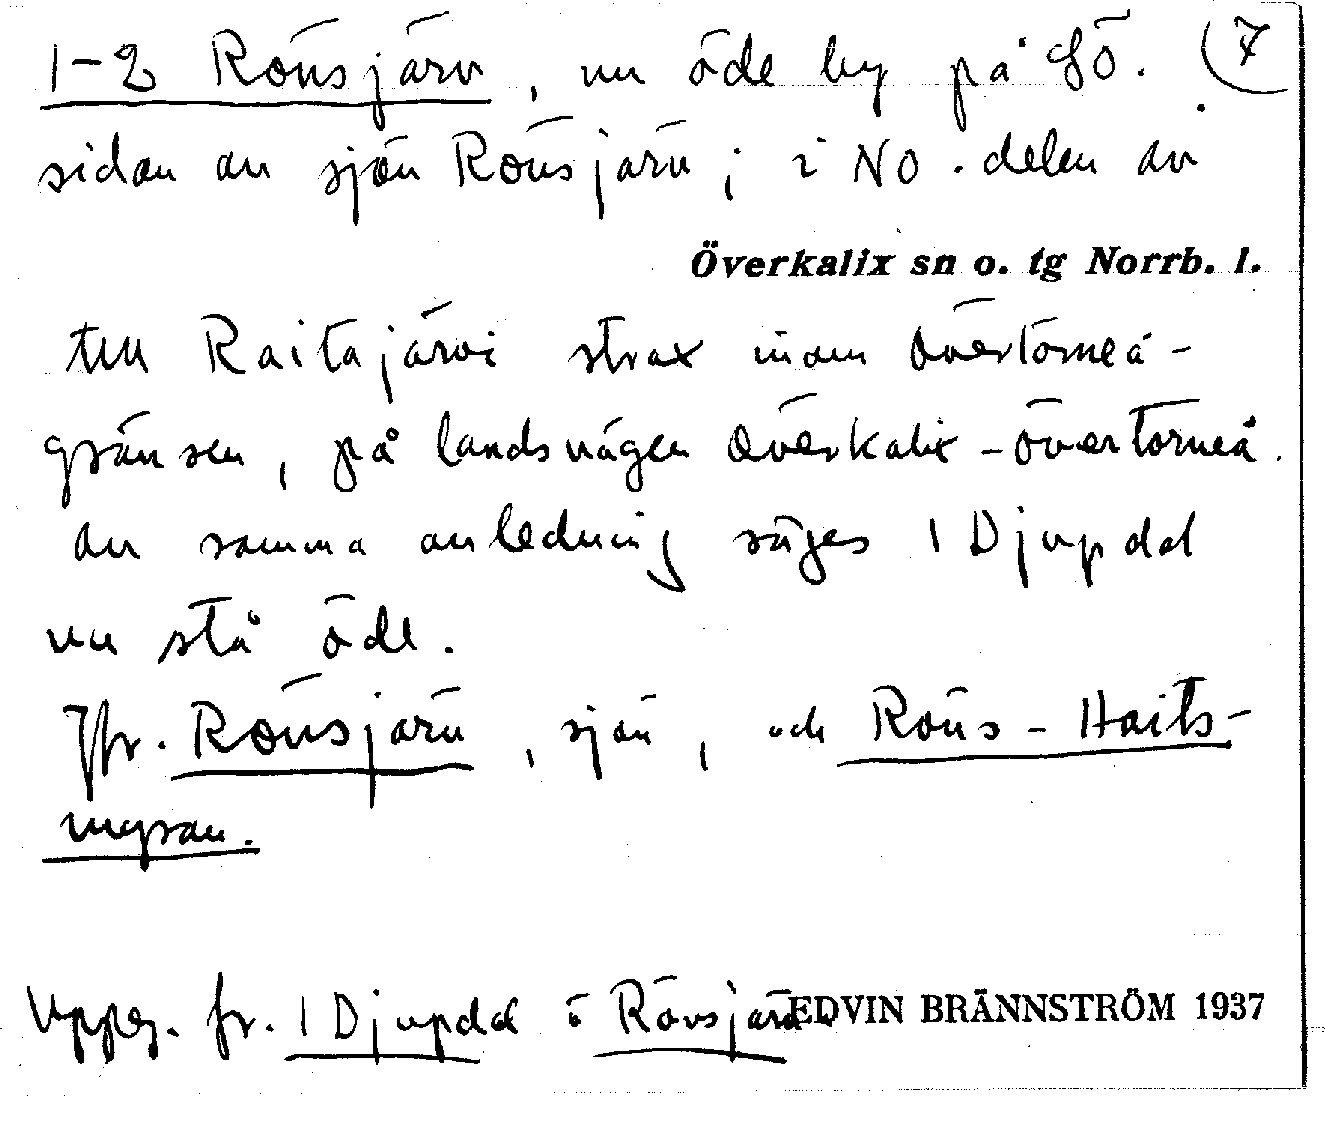 1-2 Rönsjärv, nu öde by på SÖ. (7
sidan av sjön Rönsjärv; i NO. delen av
Överkalix sn o. tg Norrb. l.
till Raitajärvi strax inom Övertorneå-
gränsen, på landsvägen Överkalix - Övertorneå.
av samma anledning säges 1 Djupdal
nu stå öde.
Jfr. Rönsjärv, sjön, och Röns-Haits-
myran.
Uppg. fr. 1 Djupdal o Rönsjärv.
EDVIN BRÄNNSTRÖM 1937